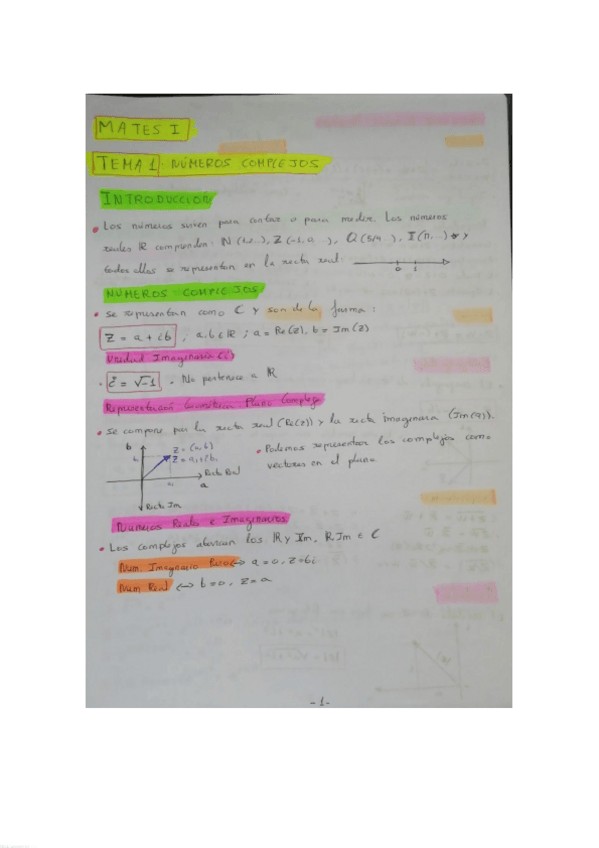 MATES I
TEMA 1. NÚMEROS COMPLEJOS
INTRODUCCIÓN
• Los números sirven para contar o para medir. Los números
reales ℝ comprenden: N (1,2...), Z (-1, 0 ...), Q (5/4...), I (π,...) y
todos ellos se representan en la recta real:
0 1
NÚMEROS COMPLEJOS
• Se representan como C y son de la forma:
Z = a + ib ; a, b ∈ ℝ ; a = Re(z), b = Im(z)
Unidad Imaginaria (i)
• i = √-1 • No pertenece a ℝ
Representación Geométrica. Plano Complejo
• Se compone por la recta real (Re(z)) y la recta imaginaria (Im(z)).
b
b
Z = (a, b)
Z = a + ib
Recta Real
a
Recta Im
• Podemos representar los complejos como
vectores en el plano
Números Reales e Imaginarios
• Los complejos abarcan los ℝ y Im. ℝ, Im ∈ C
Num. Imaginario Puro ⇔ a = 0, Z = bi
Num Real ⇔ b = 0, Z = a
- 1 -